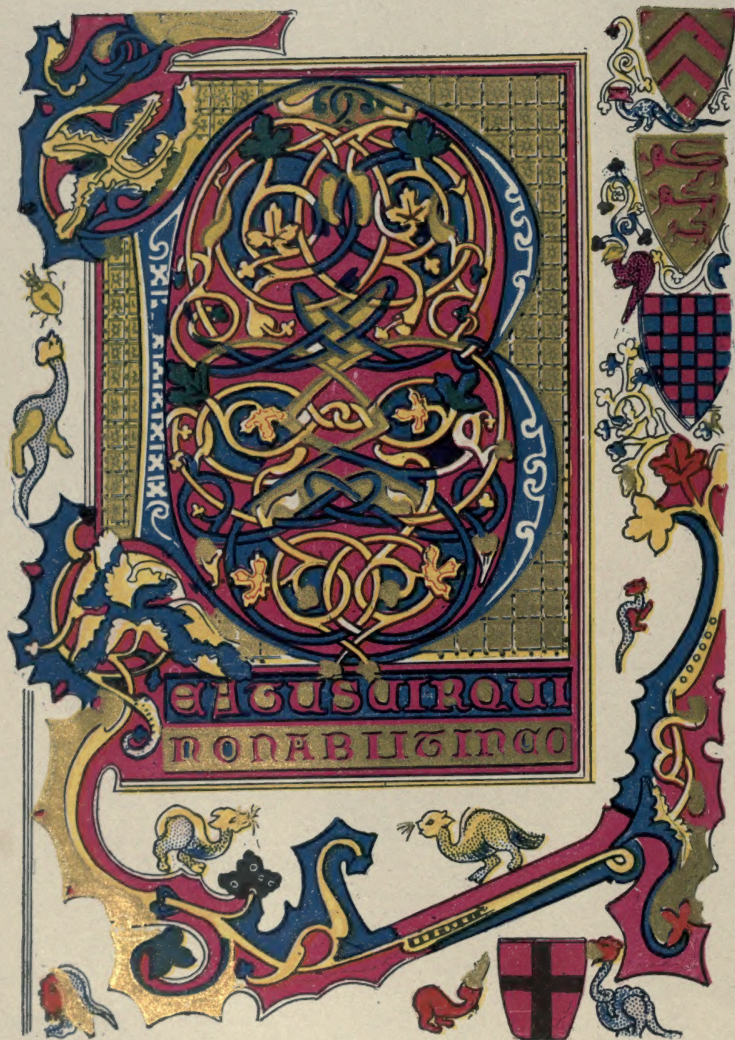 B
EATUSUIRQUI
NONABIITINCO